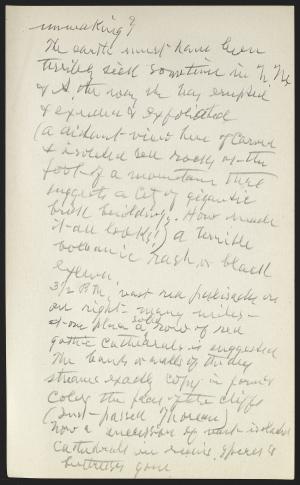 unmaking?
The earth must have been
terribly sick sometime in N. Mx
& A. the way she has erupted
& exuded & exfoliated
(a distant view here of carved
& isolated red rocks at the
foot of a mountain just
suggests a City of gigantic
brick buildings. How made
it all looks!) a terrible
volcanic rash, or black
3/2 P.M. vast red palisades on
our right many miles —
at one place a solid row of red
gothic cathedrals is suggested
The banks or walls of the dry
streams exactly copy in form &
color the face of the cliffs
(Just passed Thoreau)
now a succession of vast isolated
cathedrals in ruins, spires &
buttresses gone